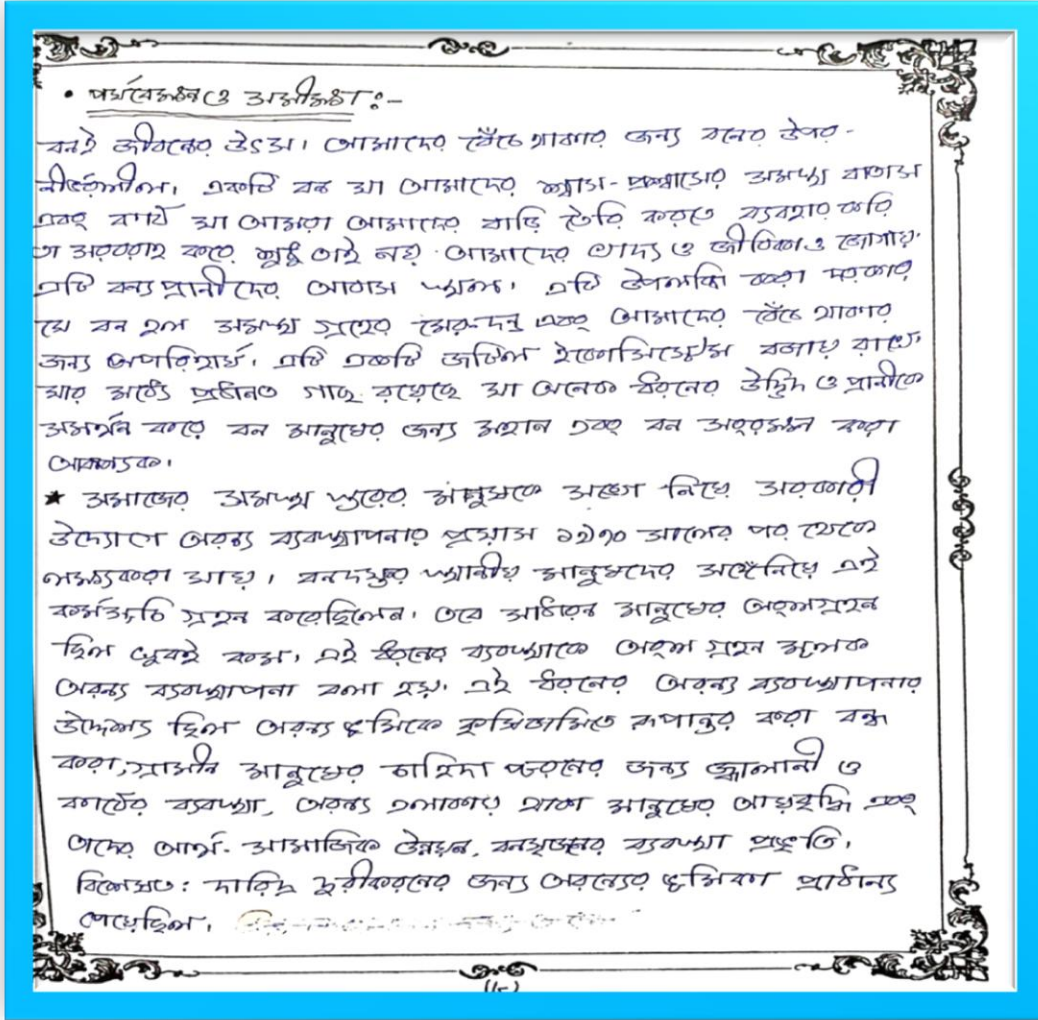 • পর্যবেক্ষণ ও সমীক্ষা :-
বনই জীবনের উৎস। আমাদের বেঁচে থাকার জন্য বনের উপর -
নীর্ভরশীল। একটি বন যা আমাদের শ্বাস-প্রশ্বাসের সমস্ত বাতাস
এবং কাঠ যা আমরা আমাদের বাড়ি তৈরি করতে ব্যবহার করি
তা সরবরাহ করে শুধু তাই নয় আমাদের খাদ্য ও জীবিকাও জোগায়।
এটি বন্যপ্রানীদের আবাস স্থল। এটি উপলব্ধি করা দরকার
যে বন হল সমস্ত গ্রহের মেরুদন্ড এবং আমাদের বেঁচে থাকার
জন্য অপরিহার্য। এটি একটি জটিল ইকোসিস্টেম বজায় রাখে,
যার মধ্যে প্রধানত গাছ রয়েছে যা অনেক ধরনের উদ্ভিদ ও প্রানীকে
সমর্থন করে বন মানুষের জন্য মহান এবং বন সংরক্ষন করা
আবশ্যক।
★ সমাজের সমস্ত স্তরের মানুষকে সঙ্গে নিয়ে সরকারী
উদ্যোগে অরন্য ব্যবস্থাপনার প্রয়াস ১৯৭০ সালের পর থেকে
লক্ষ্যকরা যায়। বনদপ্তর স্থানীয় মানুষদের সঙ্গেনিয়ে এই
কর্মসূচি গ্রহন করেছিলেন। তবে সাধারন মানুষের অংশগ্রহন
ছিল খুবই কম। এই ধরনের ব্যবস্থাকে অংশ গ্রহন মূলক
অরন্য ব্যবস্থাপনা বলা হয়। এই ধরনের অরন্য ব্যবস্থাপনার
উদ্দেশ্য ছিল অরন্য ভূমিকে কৃষিজমিতে রূপান্তর করা বন্ধ
করা, গ্রামীন মানুষের চাহিদা পূরনের জন্য জ্বালানী ও
কাঠের ব্যবস্থা, অরন্য এলাকায় থাকা মানুষের আয়বৃদ্ধি এবং
তাদের আর্থ-সামাজিক উন্নয়ন, বনসৃজনের ব্যবস্থা প্রভৃতি।
বিশেষত: দারিদ্র দূরীকরনের জন্য অরন্যের ভূমিকা প্রাধান্য
পেয়েছিল।